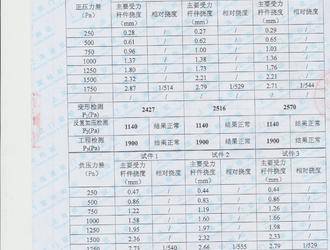 正压力差 (Pa) 主要受力杆件挠度 (mm) 相对挠度 主要受力杆件挠度 (mm) 相对挠度 主要受力杆件挠度 (mm) 相对挠度
250 0.28 / 0.27 / 0.29 /
500 0.61 / 0.62 / 0.65 /
750 0.96 / 1.00 / 1.03 /
1000 1.37 / 1.38 / 1.36 /
1250 1.80 / 1.73 / 1.76 /
1500 2.32 / 2.21 / 2.21 /
1750 2.87 1/514 2.79 1/529 2.71 1/544
变形检测 P₁(Pa) 2427 2516 2570
反复加压检测 P₂(Pa) 1140 结果正常 1140 结果正常 1140 结果正常
工程检测 P₃(Pa) 1900 结果正常 1900 结果正常 1900 结果正常
试件1 试件2 试件3
负压力差 (Pa) 主要受力杆件挠度 (mm) 相对挠度 主要受力杆件挠度 (mm) 相对挠度 主要受力杆件挠度 (mm) 相对挠度
250 0.47 / 0.44 / 0.44 /
500 0.86 / 0.83 / 0.82 /
750 1.22 / 1.19 / 1.26 /
1000 1.58 / 1.59 / 1.66 /
1250 1.95 / 1.97 / 1.98 /
1500 2.36 / 2.33 / 2.37 /
2.73 1/540 2.66 1/555 2.79 1/529